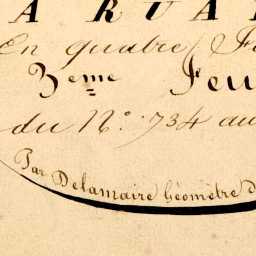 A RUA
En quatre F
3eme Feu
du N.° 734 au
Par Delamaire Géomètre d